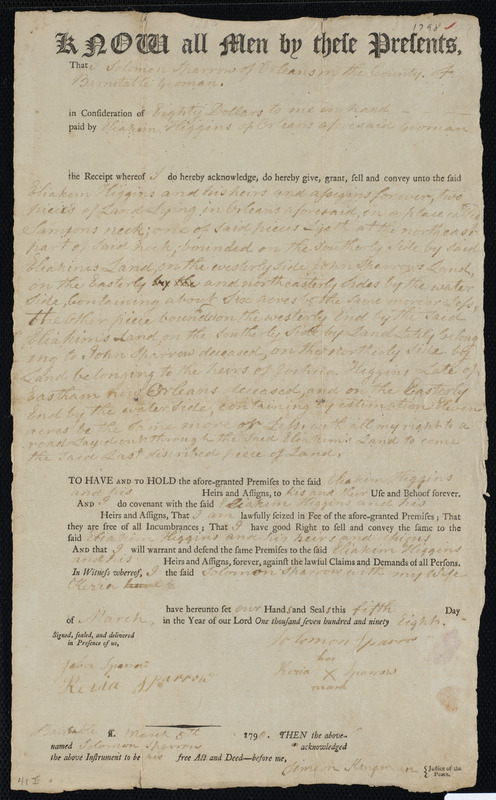 1798
KNOW all Men by these Presents,
That I Solomon Sparrow of Orleans in the County of
Barnstable yeoman.
in Consideration of Eighty Dollars to me in hand
paid by Eliakim Higgins of Orleans aforesaid yeoman
the Receipt whereof I do hereby acknowledge, do hereby give, grant, sell and convey unto the said
Eliakim Higgins and his heirs and assigns forever, two
pieces of Land Lying in Orleans aforesaid, on a place called
Samsons neck; one of said pieces Lyeth at the northeast
part of said neck; bounded on the Southerly Side by said
Eliakims Land, on the westerly side John Sparrows Land,
on the Easterly and northeasterly sides by the water
side, Containing about Six acres be the same more or Less,
the other piece bounds on the westerly End by the said
Eliakims Land, on the southerly Side by Land Lately belong
ing to John Sparrow deceased, on the northerly Side by
Land belonging to the heirs of Joshua Higgins Late of
Eastham now Orleans deceased, and on the Easterly
End by the water side, containing by estimation Eleven
acres be the same more or Less, with all my right to a
road Lay'd out through the said Eliakims Land to come
the Said Last discribed piece of Land.
TO HAVE AND TO HOLD the afore-granted Premises to the said Eliakim Higgins
and his Heirs and Assigns, to his and their Use and Behoof forever.
And I do covenant with the said Eliakim Higgins and his
Heirs and Assigns, That I am lawfully seized in Fee of the afore-granted Premises; That
they are free of all Incumbrances; That I have good Right to sell and convey the same to the
said Eliakim Higgins and his heirs and assigns
And that I will warrant and defend the same Premises to the said Eliakim Higgins
and his Heirs and Assigns, forever, against the lawful Claims and Demands of all Persons.
In Witness whereof, I the said Solomon Sparrow with my Wife
Kezia
have hereunto set our Hands and Seals this fifth Day
of March, in the Year of our Lord One thousand seven hundred and ninety Eight.
Signed, sealed, and delivered
in Presence of us,
Solomon Sparrow
her
Kezia X Sparrow
mark
Sparrow
Kezia Sparrow
Barnstable ss. March 5th 1798. THEN the above-
named Solomon Sparrow acknowledged
the above Instrument to be his free Act and Deed—before me,
Simeon Kingman Justice of the
Peace.
41 I